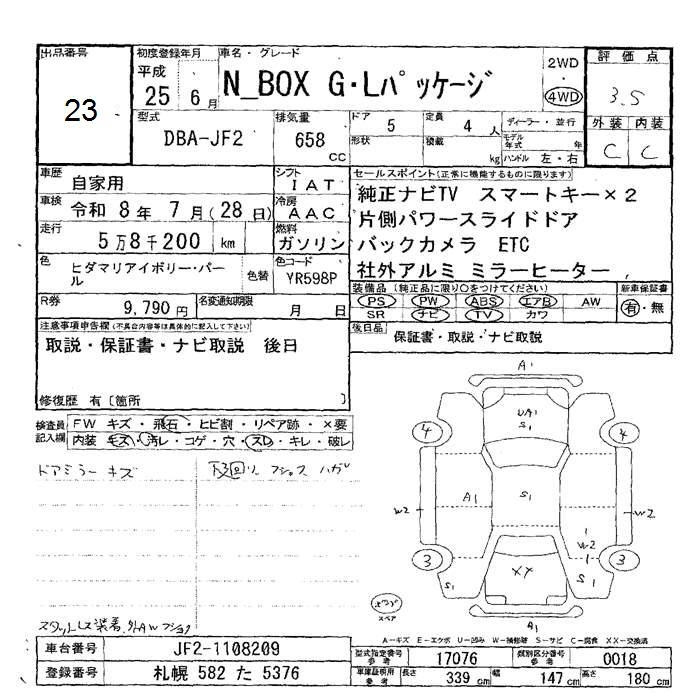 出品番号
23
初度登録年月
平成
25 6月
車名・グレード
N_BOX G・Lパッケージ
2WD
・
4WD
評価点
3.5
外装 内装
C C
型式
DBA-JF2
排気量
658
cc
ドア
5
定員
4 人
形状
積載
kg
ディーラー・並行
モデル年式 年
ハンドル 左・右
車歴
自家用
シフト
IAT
車検
令和 8年 7月(28日)
冷房
AAC
走行
5万8千200 km
燃料
ガソリン
色
ヒダマリアイボリー・パール
色替
色コード
YR598P
R券
9,790円
名変通知期限
月 日
セールスポイント(正常に機能するものに限ります)
純正ナビTV スマートキー×2
片側パワースライドドア
バックカメラ ETC
社外アルミ ミラーヒーター
装備品 (純正品に限り○をつけてください)
PS PW ABS エアB AW
SR ナビ TV カワ
新車保証書
有・無
後日品
保証書・取説・ナビ取説
注意事項申告欄(不具合内容等は具体的に記入して下さい)
取説・保証書・ナビ取説 後日
修復歴 有〔箇所 〕
検査員記入欄
FW キズ・飛石・ヒビ割・リペア跡・×要
内装 キズ・汚レ・コゲ・穴・スレ・キレ・破レ
ドアミラー キズ
下回り フショク ハガレ
スタットレス装着
A1
UA1
S1
4 4
W2 A1 S1 W2
W2
3 3
S1 XX S1
A1
スペア
A-キズ E-エクボ U-凹み W-補修跡 S-サビ C-腐食 XX-交換済
車台番号
JF2-1108209
登録番号
札幌 582 た 5376
型式指定番号
参考
17076
類別区分番号
参考
0018
車庫証明用
参考
長さ
339 cm
幅
147 cm
高さ
180 cm